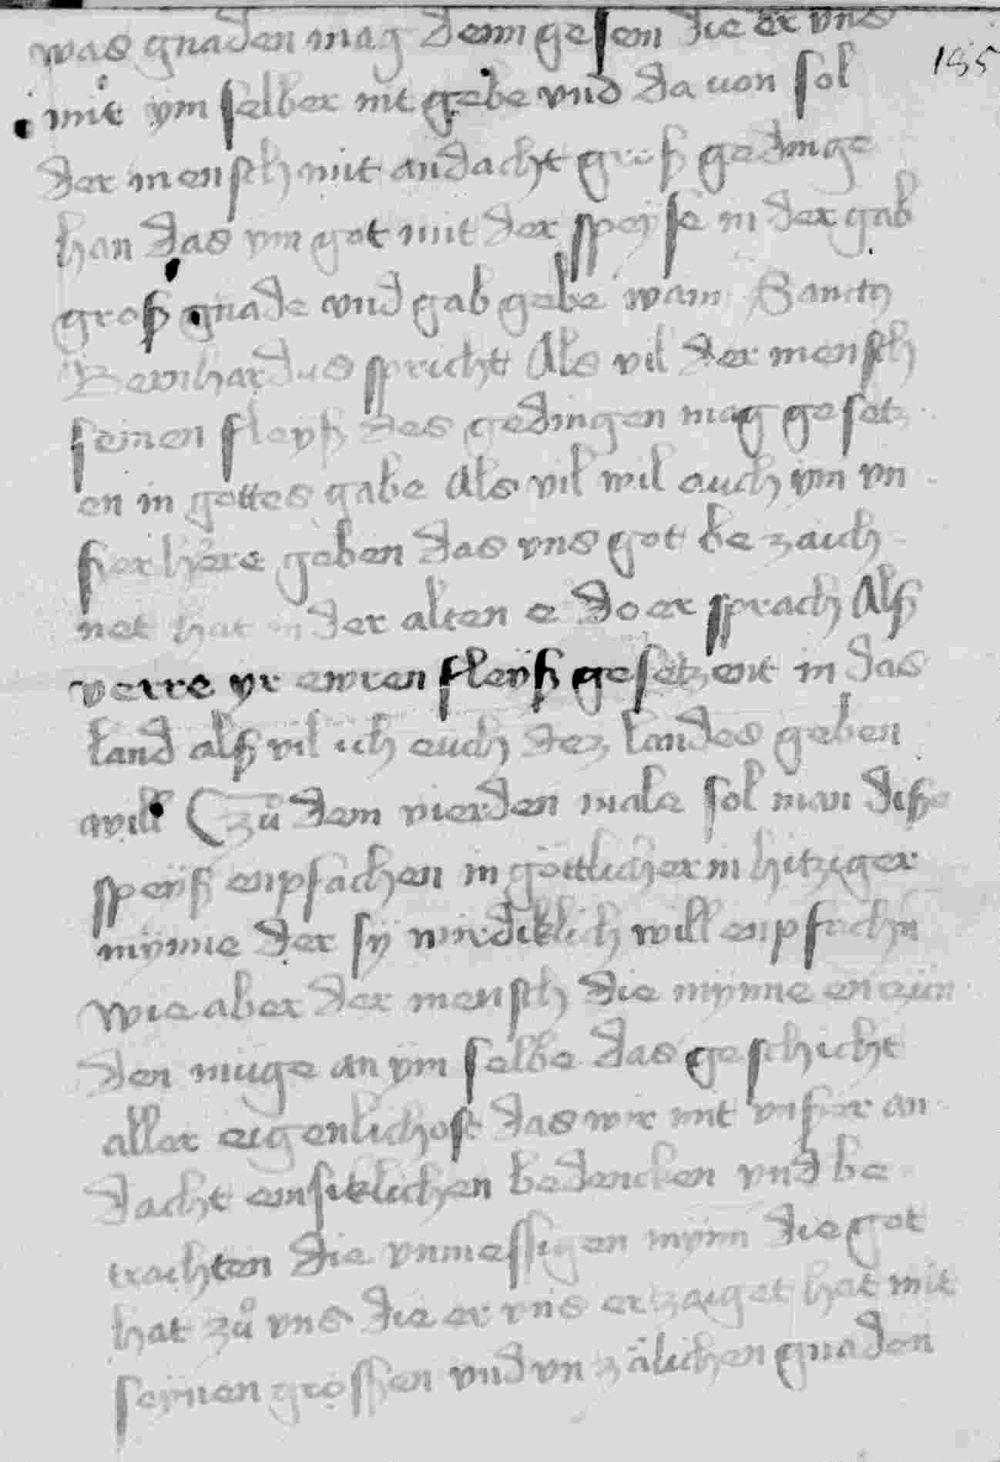 was gnaden mag denn gesein die er vns
185
mit ym selber nit gebe vnd da uon sol
der mensch mit andacht groß gedinge
han das ym got mit der speyse in der gab
groß gnade vnd gab gebe wann Sancty
Bernhardus spricht Als vil der mensch
seinen fleyß des gedingen mag gesetz
en in gottes gabe Als vil wil auch ym vn
ser here geben das vns got bezaich
net hat in der alten e do er sprach Alß
verre yr ewren fleyß gesetzent in das
land alß vil ich euch dez landes geben
will Zů dem vierden male sol man diße
speyß enpfachen in göttlicher in hitziger
mynne der sy wirdiklich will enpfachn
wie aber der mensch die mynne enzün
den müge an ym selbe das geschicht
aller eigenlichost das wir mit vnser an
dacht emsiklichen bedencken vnd be
trachten die vnmessigen mynn die got
hat zů vns die er vns erzaiget hat mit
seynen grossen vnd vnzälichen gnaden